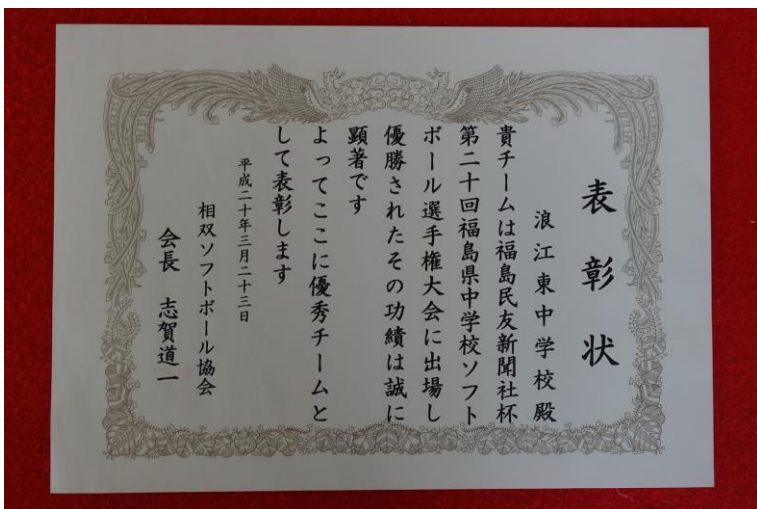 表彰状
浪江東中学校殿
貴チームは福島民友新聞社杯
第二十回福島県中学校ソフト
ボール選手権大会に出場し
優勝されたその功績は誠に
顕著です
よってここに優秀チームと
して表彰します
平成二十年三月二十三日
相双ソフトボール協会
会長 志賀道一